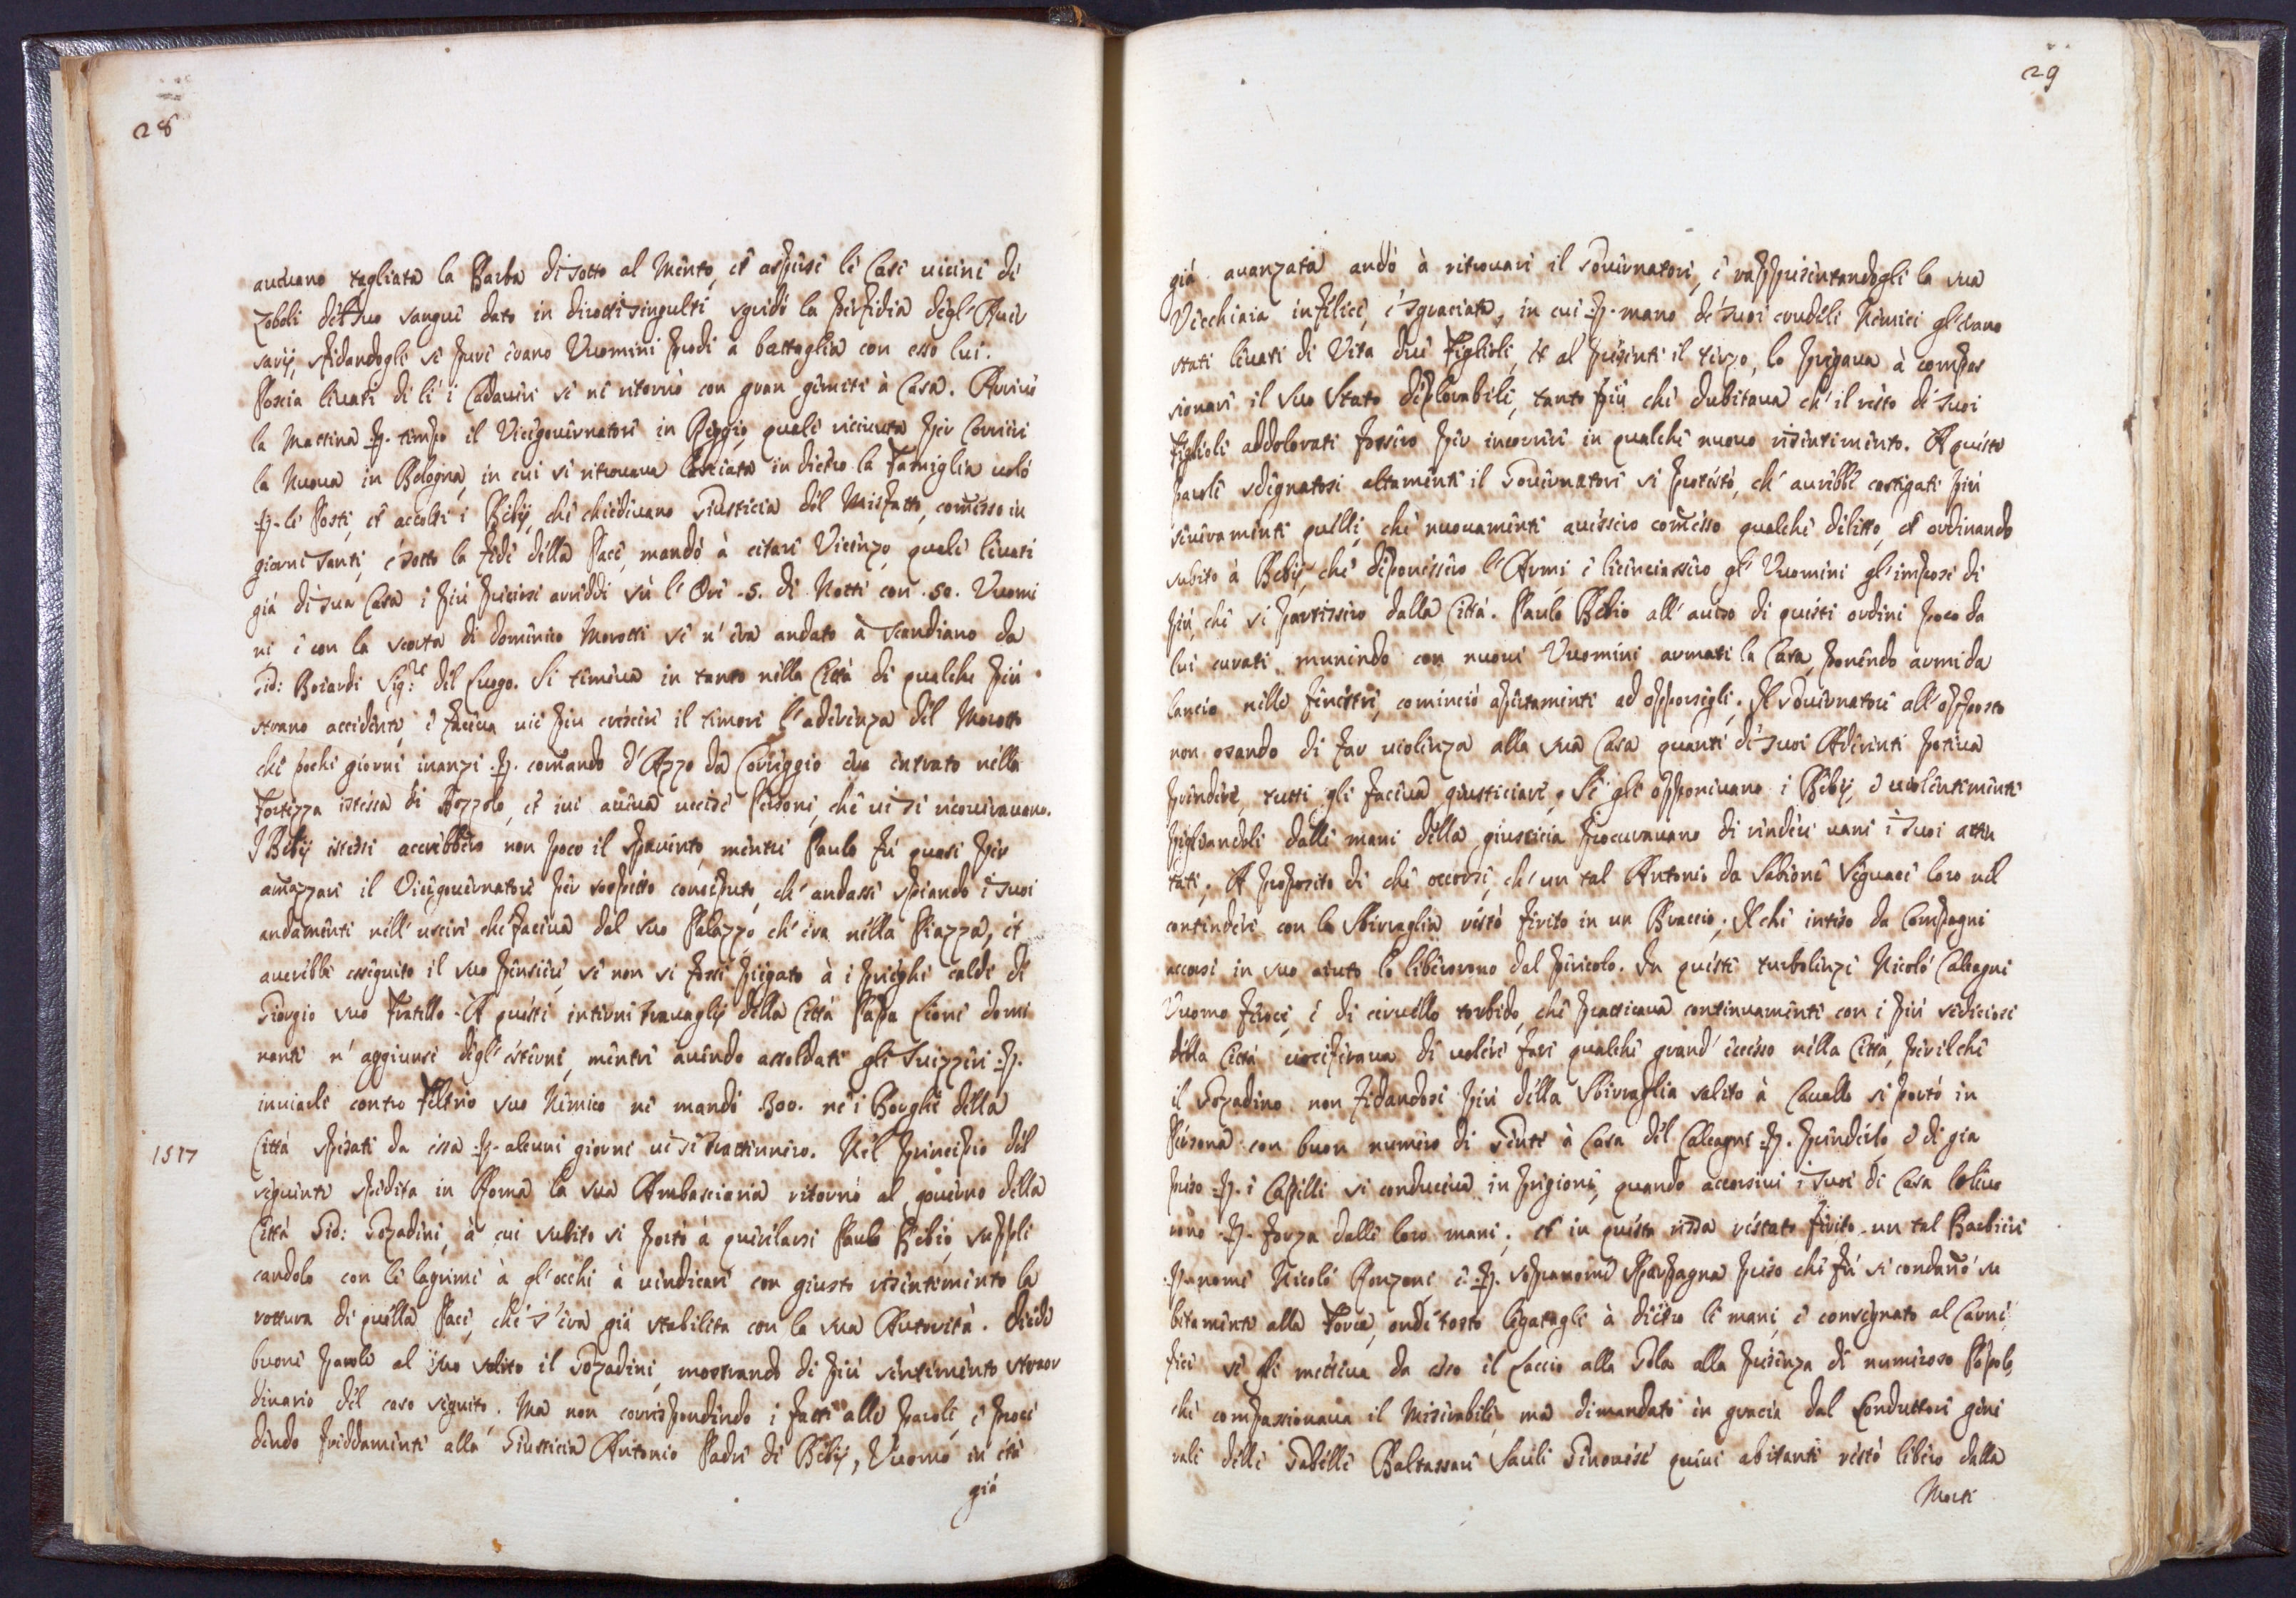 28
aueuano tagliata la Barba di sotto al Mento, et asperse le Case uicine di
Zoboli del suo sangue dato in dirotti singulti sgridò la perfidia degl' Auer
sarij, sfidandogli se pure erano Vuomini prodi a battaglia con esso lui.
Poscia leuati di lì i Cadaueri se ne ritornò con gran gemiti à Casa. Arriuò
la Mattina p. tempo il Vicegouernatore in Reggio, quale riceuuta per Corriere
la Nuoua in Bologna, in cui si ritrouaua lasciata in dietro la Famiglia uolò
p. le Poste, et accolti i Bebij, che chiedeuano Giusticia del Misfatto, comesso in
giorni santi, e sotto la fede della Pace, mandò à citare Vicenzo, quale leuati
già di sua Casa i più preciosi arredi sù l' Ore .5. di Notte con .50. Vuomi
ni e con la scorta di domenico Morotti se n' era andato à Scandiano da
Gio: Boiardi Sig.re del Luogo. Si temeua in tanto nella Città di qualche più
strano accidente, e faceua uie più crescere il timore l' aderenza del Morotto
che pochi giorni inanzi .p. comando d' Azzo da Correggio era entrato nella
Fortezza istessa di Bozzolo, et iui aueua uccise Persone, che ui si ricourauano.
I Bebij istessi accrebbero non poco il spauento, mentre Paulo fù quasi per
amazzare il Vicegouernatore per sospetto conceputo, ch' andasse spiando i suoi
andamenti nell' uscire che faceua dal suo Palazzo, ch' era nella Piazza, et
auerebbe esseguito il suo pensiere, se non si fosse piegato à i prieghi caldi di
Giorgio suo Fratello. A questi interni trauaglij della Città Papa Lione domi
nante n' aggiunse degl' esterni, mentre auendo assoldati gli Suizzeri .p.
inuiarli contro Feltrio suo Nemico ne mandò .300. ne i Borghi della
Città spesati da essa .p. alcuni giorni ui si trattennero. Nel Principio del
1517
seguente spedita in Roma la sua Ambasciaria ritornò al gouerno della
Città Gio: Gozadini, à cui subito si portò à querelarsi Paulo Bebio, suppli
candolo con le lagrime à gl' occhi à uindicare con giusto risentimento la
rottura di quella Pace, che s' era già stabilita con la sua Autorità. Diede
buone parole al suo solito il Gozadini, mostrando di più sentimento straor
dinario del caso seguito. Ma non corrispondendo i fatti alle parole, e proce
dendo freddamente alla Giusticia Antonio Padre di Bebij, Vuomo in età
già
29
già auanzata andò à ritrouare il Gouernatore, e rappresentandogli la sua
Vecchiaia infelice, e sgraciata, in cui .p. mano de suoi crudeli Nemici gl' erano
stati leuati di Vita due Figlioli, et al presente il terzo, lo pregaua à compas
sionare il suo Stato deplorabile, tanto più che dubitaua ch' il resto di suoi
figlioli addolorati fossero per incorrere in qualche nuouo risentimento. A queste
parole sdegnatosi altamente il Gouernatore si protestò, ch' aurebbe castigati più
seueramente quelli, che nuouamente auessero comesso qualche delitto, et ordinando
subito à Bebij, che deponessero l' Armi e licenciassero gl' Vuomini gl' impose di
più, che si partissero dalla Città. Paulo Bebio all' auiso di questi ordini poco da
lui curati, munendo con nuoui Vuomini armati la Casa, ponendo armi da
lancio nelle finestre, cominciò apertamente ad opporsegli. Il Gouernatore all' opposto
non osando di far uiolenza alla sua Casa quanti di suoi Aderenti poteua
prendere, tutti gli faceua giusticiare. Se gli opponeuano i Bebij, e uiolentemente
pigliandoli dalle mani della giusticia procurauano di rendere uani i suoi atten
tati. A proposito di che occorse, ch' un tal Antonio da Sabione Seguace loro nel
contendere con la Sbirraglia restò ferito in un Braccio. Il che inteso da Compagni
accorsi in suo aiuto lo liberorono dal pericolo. In queste turbolenze Nicolò Calcagni
Vuomo feroce, e di ceruello torbido, che pratticaua continuamente con i più sediciosi
della Città uociferaua di uolere fare qualche grand' eccesso nella Città, perilche
il Gozadino non fidandosi più della Sbirraglia salito à Cauallo si portò in
Persona con buon numero di Gente à Casa del Calcagni .p. prenderlo, e di già
preso .p. i Capelli si conduceua in prigione, quando accorsiui i suoi di Casa lo leuo
rono .p. forza dalle loro mani; et in questa rissa restato ferito un tal Barbiere
.p. nome Nicolò Ronzone, e .p. sopranome Sparpagna preso che fù si condanò su
bitamente alla Forca, onde tosto legategli à dietro le mani, e consegnato al Carne
fice se gli metteua da esso il Laccio alla Gola alla presenza di numeroso Popolo,
che compassionaua il Miserabile, ma dimandato in gracia dal Conduttore gene
rale delle Gabelle Baltassare Sauli Genouese quiui abitante restò libero dalla
Morte